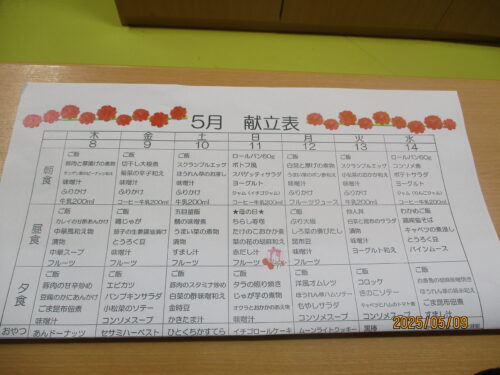 5月 献立表
木 金 土 日 月 火 水
8 9 10 11 12 13 14
朝食
ご飯
豚肉と厚揚げの煮物
味噌汁
ふりかけ
牛乳200ml
ご飯
切干し大根煮
菊菜の辛子和え
味噌汁
ふりかけ
コーヒー牛乳200ml
ご飯
スクランブルエッグ
ほうれん草のお浸し
味噌汁
ふりかけ
牛乳200ml
ロールパン60g
ポトフ風
スパゲッティサラダ
ヨーグルト
ジャム(イチゴジャム)
コーヒー牛乳200ml
ご飯
白菜と厚けの煮物
うまい菜のポン酢和え
味噌汁
ふりかけ
フルーツジュース
ご飯
スクランブルエッグ
味噌汁
ふりかけ
牛乳200ml
ロールパン60g
コンソメ煮
ポテトサラダ
ヨーグルト
コーヒー牛乳200ml
昼食
ご飯
カレイの甘酢あんかけ
中華風和え物
漬物
中華スープ
フルーツ
ご飯
鶏じゃが
茄子の生姜醤油炊き
とうろく豆
味噌汁
フルーツ
五目釜飯
鯖の味噌煮
うまい菜の煮物
漬物
すまし汁
フルーツ
★母の日★
ちらし寿司
たけのこおかか煮
菜の花の胡麻和え
赤だし汁
フルーツ
ご飯
ぶり大根
しろ菜の煮浸し
昆布豆
味噌汁
フルーツ
他人丼
白菜と昆布のサラダ
漬物
味噌汁
ヨーグルト和え
わかめご飯
鶏肉梅そぼ
キャベツの煮浸し
とうろく豆
パインムース
夕食
ご飯
豚肉の甘辛炒め
豆鶏のかにあんかけ
ごま昆布佃煮
味噌汁
ご飯
エビカツ
パンプキンサラダ
小松菜のソテー
コンソメスープ
ご飯
豚肉のスタミナ炒め
白菜の酢味噌和え
金時豆
かきたま汁
ご飯
タラの照り焼き
じゃが芋の煮物
オクラとおかかの和え物
味噌汁
ご飯
洋風オムレツ
ほうれん草ハムソテー
もやしサラダ
コンソメスープ
ご飯
コロッケ
きのこソテー
コンソメスープ
ご飯
ごま昆布佃煮
すまし汁
おやつ
あんドーナッツ
セサミハーベスト
ひとくちかすてら
イチゴロールケーキ
ムーンライトクッキー
黒棒
2025/05/09